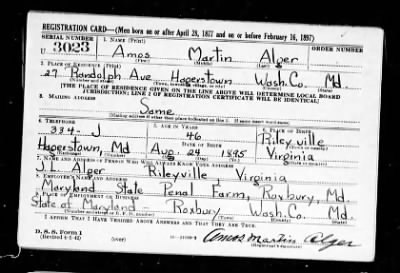 REGISTRATION CARD—(Men born on or after April 28, 1877 and on or before February 16, 1897)
SERIAL NUMBER 1. NAME (Print) ORDER NUMBER
U 3023 Amos Martin Alger
(First) (Middle) (Last)
2. PLACE OF RESIDENCE (Print)
27 Randolph Ave Hagerstown Wash. Co. Md.
(Number and street) (Town, township, village, or city) (County) (State)
[THE PLACE OF RESIDENCE GIVEN ON THE LINE ABOVE WILL DETERMINE LOCAL BOARD
JURISDICTION; LINE 2 OF REGISTRATION CERTIFICATE WILL BE IDENTICAL]
3. MAILING ADDRESS
Same
[Mailing address if other than place indicated on line 2. If same insert word same]
4. TELEPHONE 5. AGE IN YEARS 6. PLACE OF BIRTH
334-J 46 Rileyville
DATE OF BIRTH (Town or county)
Hagerstown, Md Aug. 24 1895 Virginia
(Exchange) (Number) (Mo.) (Day) (Yr.) (State or country)
7. NAME AND ADDRESS OF PERSON WHO WILL ALWAYS KNOW YOUR ADDRESS
J. L. Alger Rileyville Virginia
8. EMPLOYER'S NAME AND ADDRESS
Maryland State Penal Farm, Roxbury, Md.
9. PLACE OF EMPLOYMENT OR BUSINESS
State of Maryland - Roxbury, Wash. Co. Md.
(Number and street or R. F. D. number) (Town) (County) (State)
I AFFIRM THAT I HAVE VERIFIED ABOVE ANSWERS AND THAT THEY ARE TRUE.
D. S. S. Form 1
(Revised 4-1-42) (over) Amos Martin Alger
(Registrant's signature)